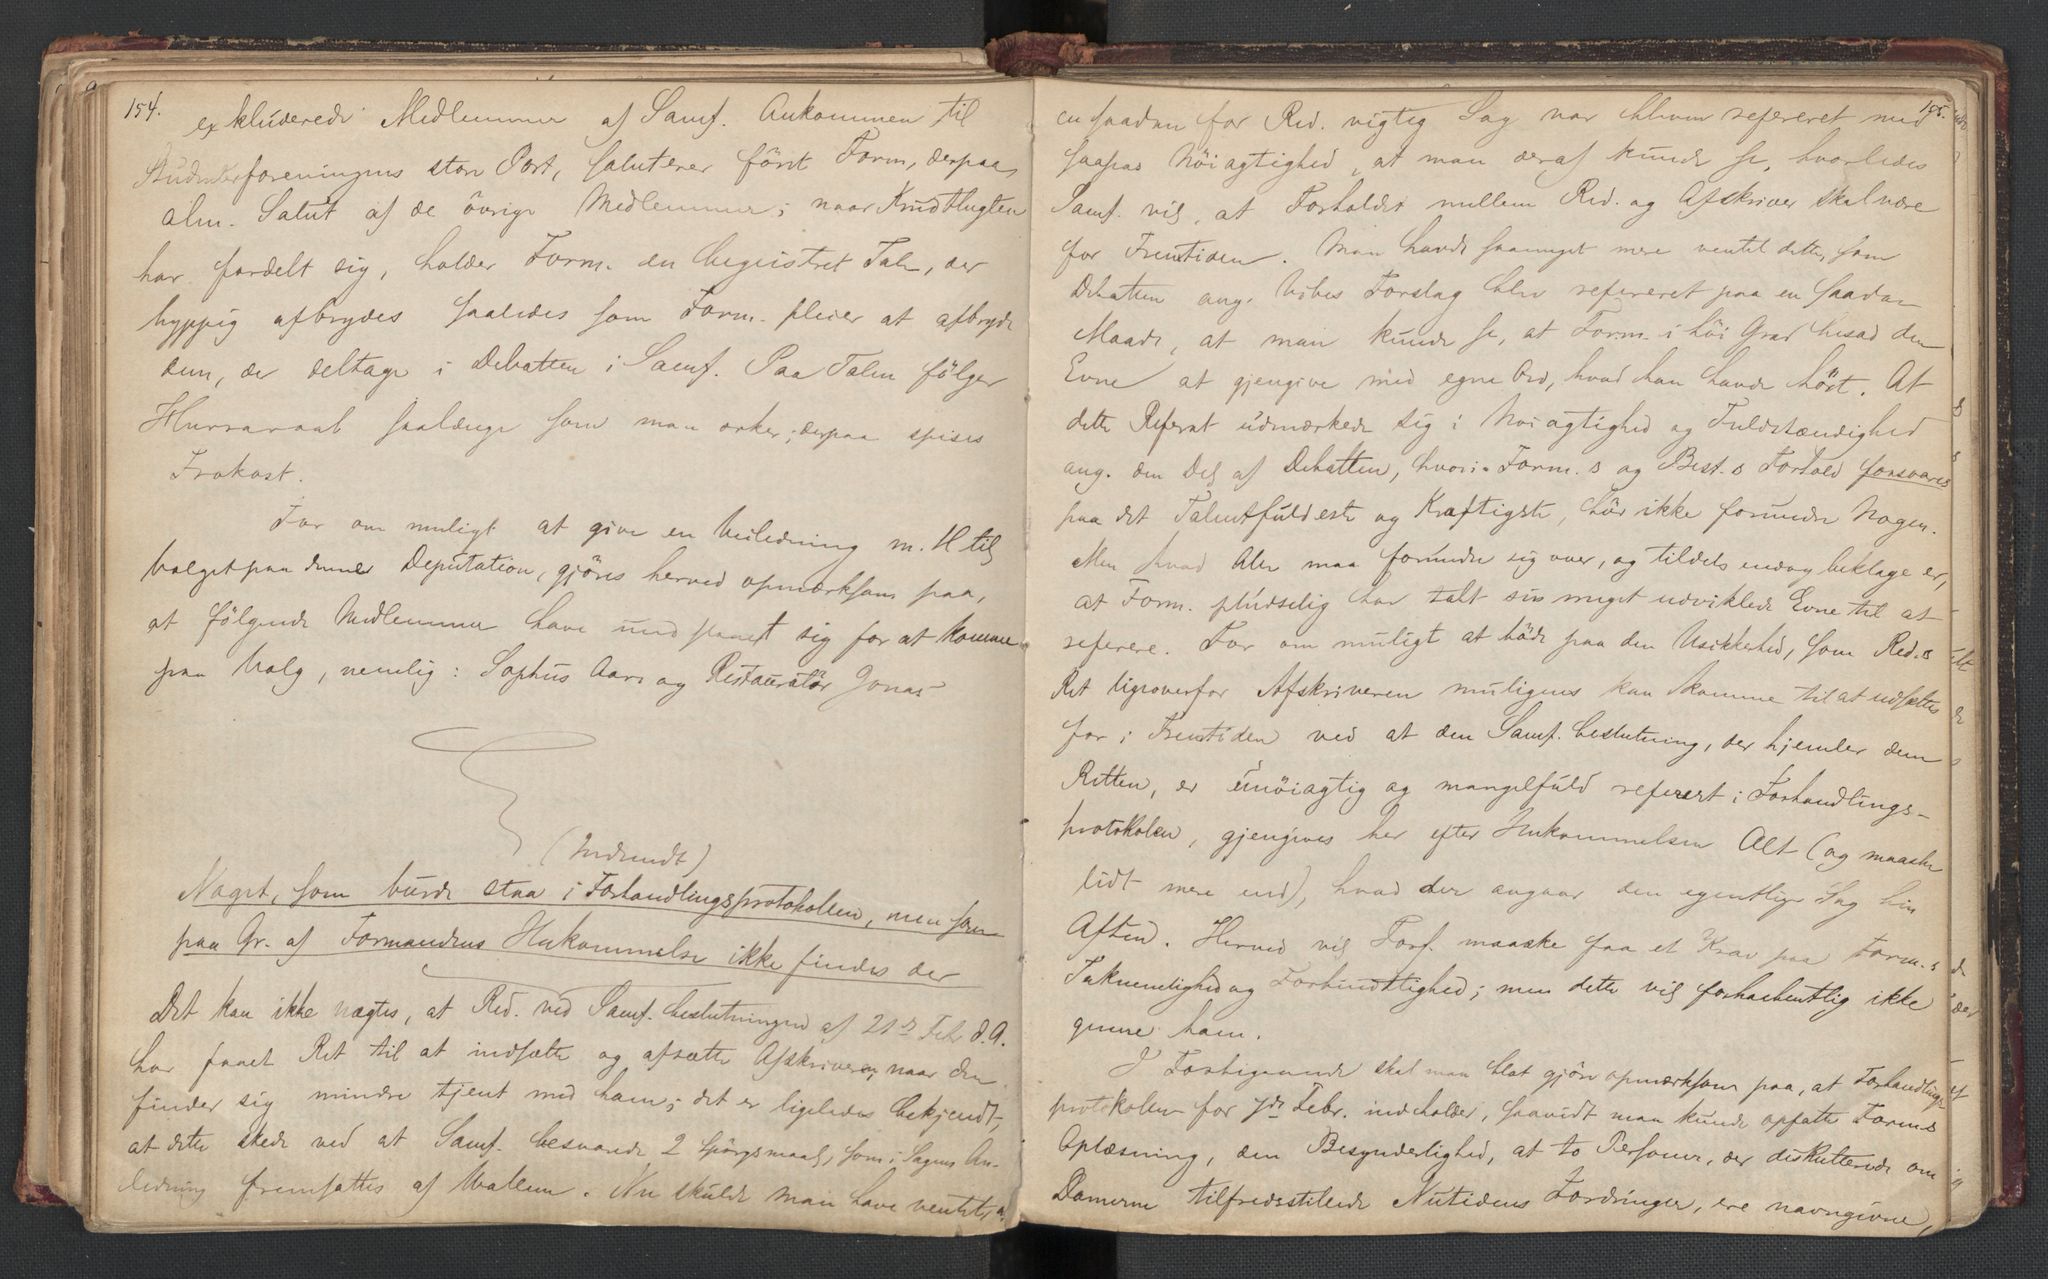 154.
exkluderede Medlemmer af Samf. Ankommen til
Studenterforeningens store Port, saluterer först Form, derpaa
alm. Salut af de övrige Medlemmer; naar Krudtlugten
har fordelt sig, holder Form. en begeistret Tale, der
hyppig afbrydes saaledes som Form. pleier at afbryde
dem, der deltage i Debatten i Samf. Paa Talen fölger
Hurraraab saalænge som man orker; derpaa spises
Frokost.
For om muligt at give en Veiledning m. H til
Valget paa denne Deputation, gjöres herved opmærksom paa,
at fölgende Medlemmer have undslaaet sig for at komme
paa Valg, nemlig: Sophus Aars og Restauratör Jonas
(Indsendt)
Noget, som burde staa i Forhandlingsprotokollen, men som
paa Gr. af Formandens Hukommelse ikke findes der
Det kan ikke nægtes, at Red. ved Samf. beslutningen af 21de Febr d. A.
har faaet Ret til at indsætte og afsætte Afskriveren, naar den
finder sig mindre tjent med ham; det er ligeledes bekjendt,
at dette skede ved at Samf. besvarede 2 Spörgsmaal, som i Sagens An-
ledning fremsattes af Wallem. Nu skulde man have ventet a
155.
en saadan for Red. vigtig Sag var bleven refereret med
saapas Nöiagtighed, at man deraf kunde se, hvorledes
Samf. vil, at Forholdet mellem Red. og Afskriver skal være
for Fremtiden. Man havde saameget mere ventet dette, som
Debatten ang. Vibes Forslag blev refereret paa en saadan
Maade, at man kunde se, at Form. i höi Grad besad den
Evne at gjengive med egne Ord, hvad han havde hört. At
dette Referat udmærkede sig i Nöiagtighed og Fuldstændighed
ang. den Del af Debatten, hvori Form.s og Best.s Forhold forsvares
paa det Talentfuldeste og Kraftigste, bör ikke forundre Nogen.
Men hvad Alle maa forundre sig over, og tildels endog beklage er,
at Form. pludselig har tabt sin meget udviklede Evne til at
referere. For om muligt at böde paa den Usikkerhed, som Red.s
Ret ligeoverfor Afskriveren muligens kan komme til at udsættes
for i Fremtiden ved at den Samf. beslutning, der hjemler dem
Retten, er unöiagtig og mangelfuld referert i Forhandlings-
protokolen, gjengives her efter Hukommelsen Alt (og maaske
lidt mere end), hvad der angaar den egentlige Sag hin
Aften. Herved vil Forf. maaske faa et Krav paa Form.s
Taknemelighed og Forbindtlighed; men dette vil forhaabentlig ikke
genere ham.
I Forbigaaende skal man blot gjöre opmærksom paa, at Forhandlings
protokolen for 7de Febr. indeholder, saavidt man kunde opfatte Forms
Oplæsning, den Besynderlighed, at to Personer, der diskutterede om
Damerne tilfredsstillede Nutidens Fordringer, ere navngivne,